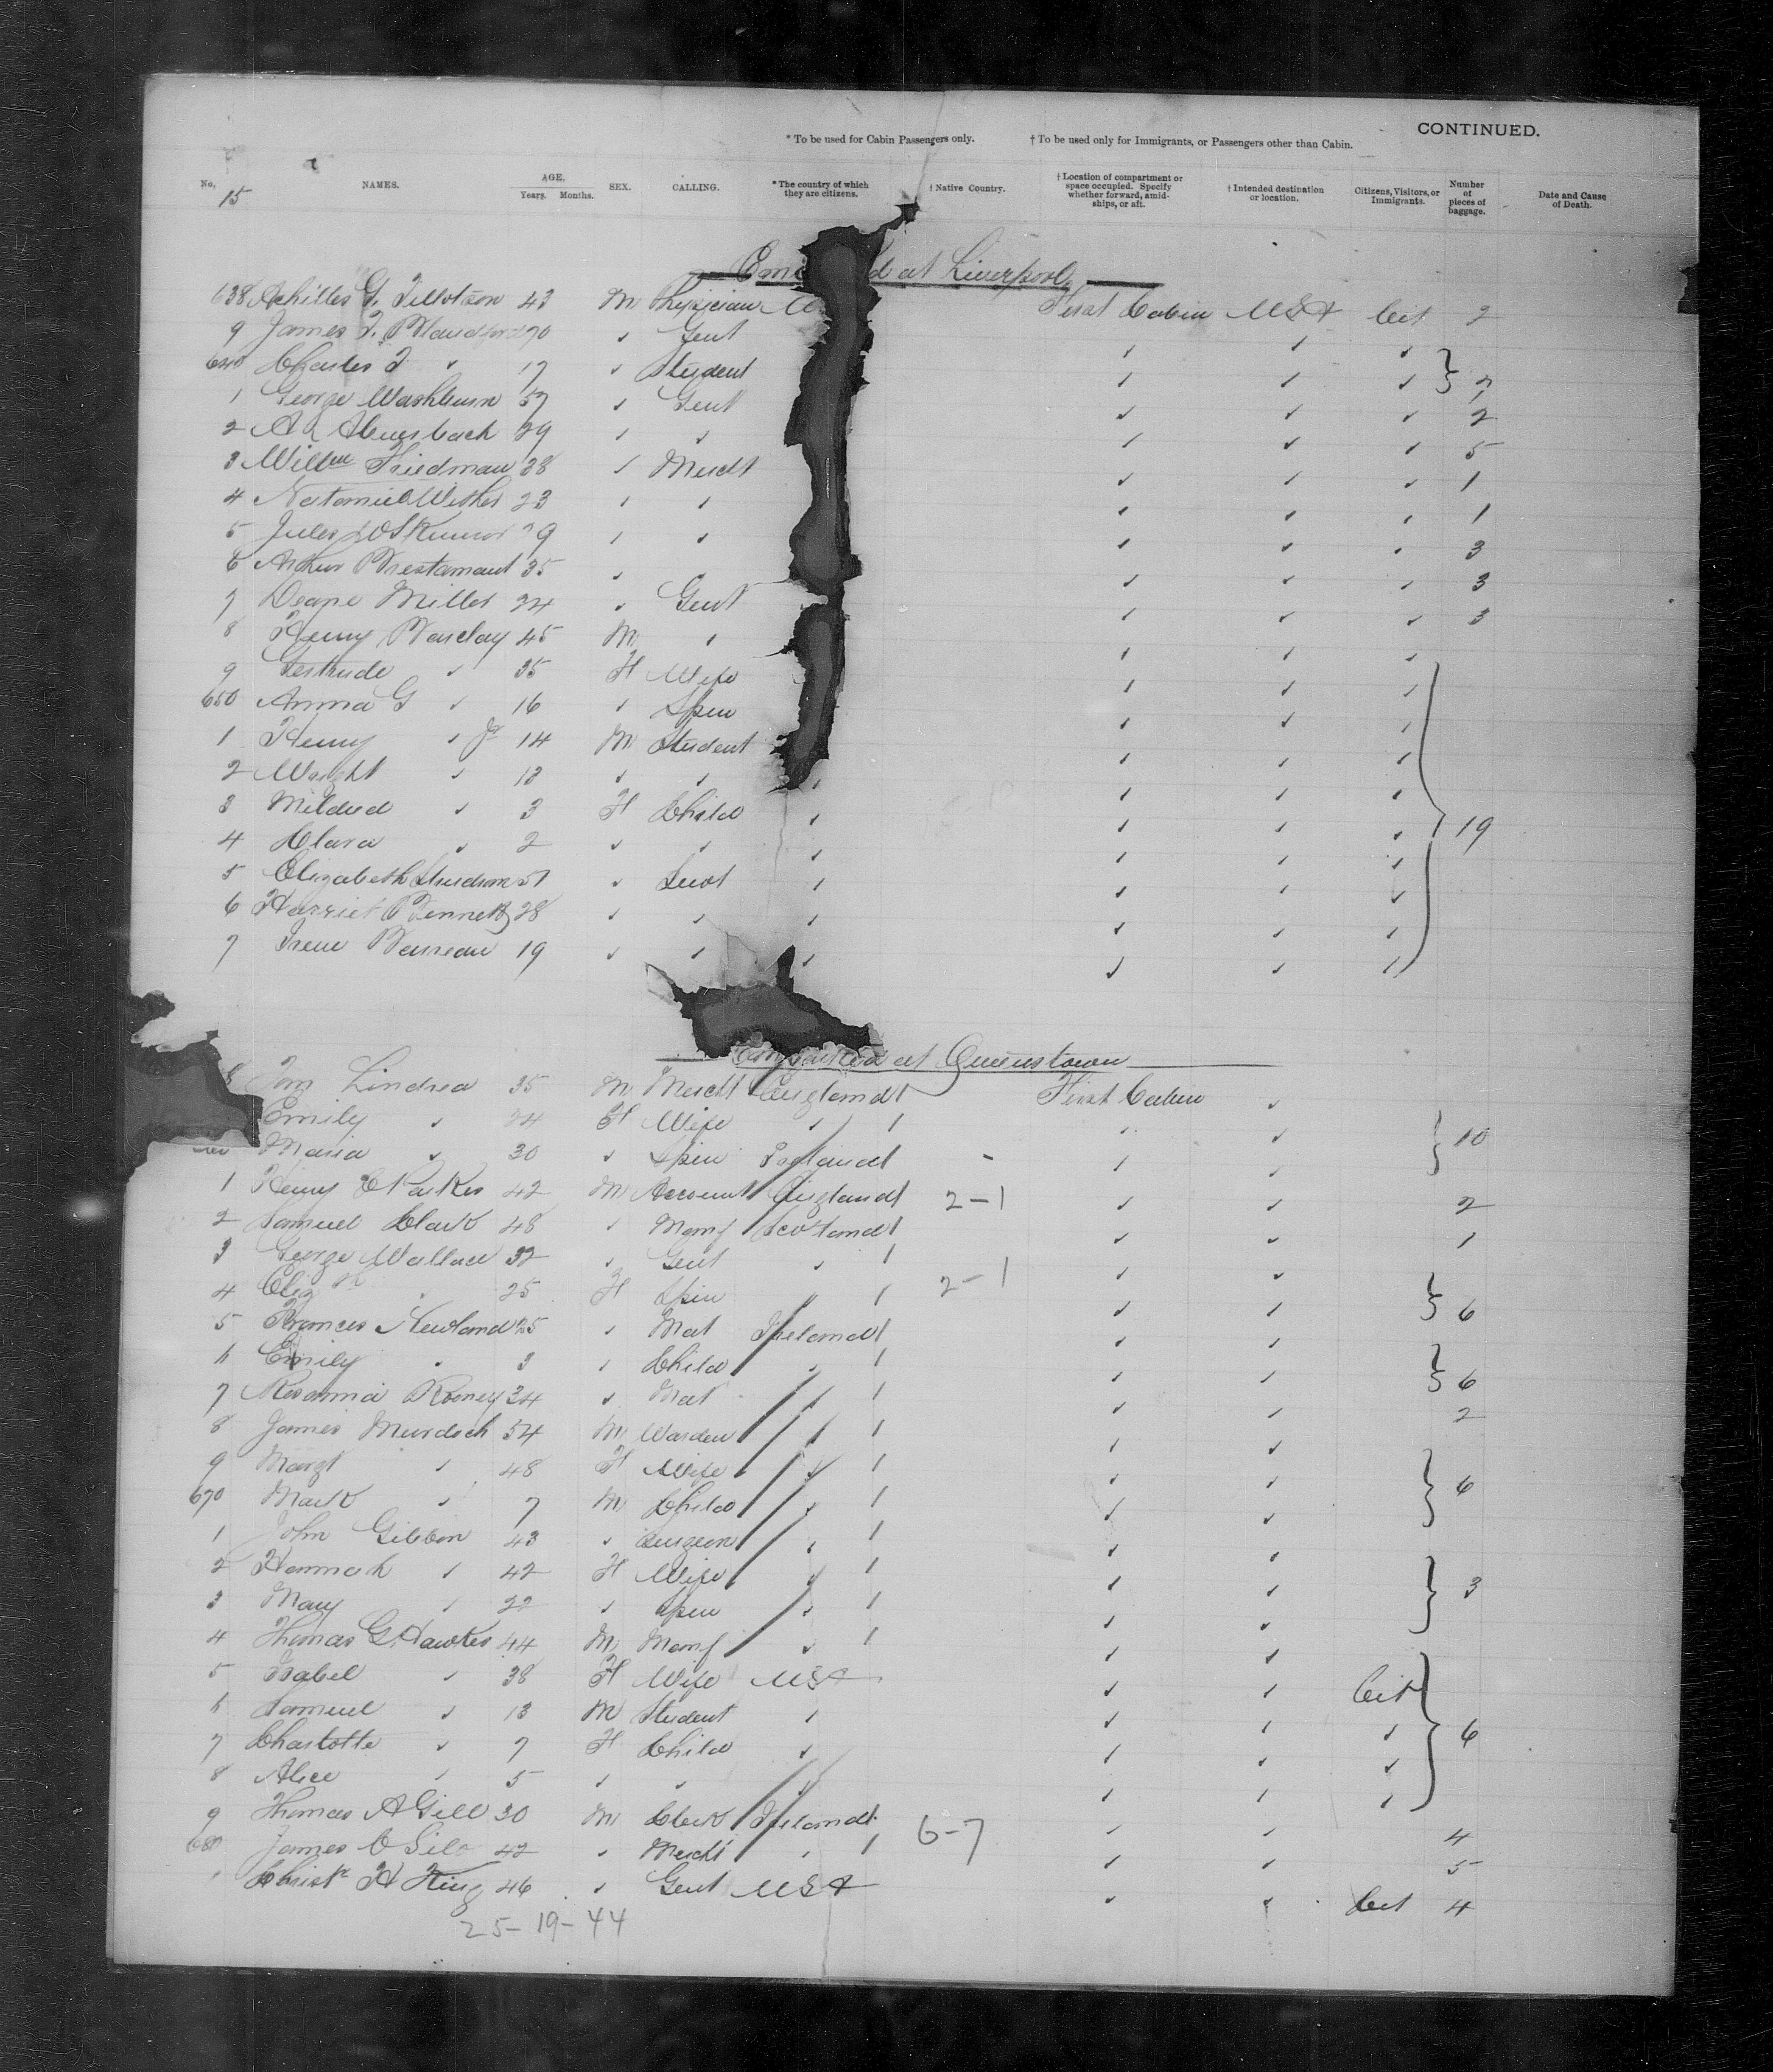 CONTINUED.
* To be used for Cabin Passengers only. † To be used only for Immigrants, or Passengers other than Cabin.
No. NAMES. AGE. Years. Months. SEX. CALLING. * The country of which they are citizens. † Native Country. † Location of compartment or space occupied. Specify whether forward, amidships, or aft. † Intended destination or location. Citizens, Visitors, or Immigrants. Number of pieces of baggage. Date and Cause of Death.
15
at Liverpool
638 Achilles G. Tillotson 43 M Physician First Cabin USA Cit 2
9 James T. 70 ✓ Gent ✓ ✓ ✓
640 Charles T ✓ 17 ✓ Student ✓ ✓ ✓
1 George Washburn 57 ✓ Gent ✓ ✓ ✓ 2
2 29 ✓ ✓ ✓ ✓ ✓ 5
3 Willm Friedman 38 ✓ Mercht ✓ ✓ ✓ 1
4 23 ✓ ✓ ✓ ✓ ✓ 1
5 Jules ✓ ✓ ✓ ✓ ✓ 3
6 Arthur 35 ✓ ✓ ✓ ✓ ✓ 3
7 Deane Miller 24 ✓ Gent ✓ ✓ ✓ 3
8 Henry Barclay 45 M ✓ ✓ ✓ ✓
9 Gertrude ✓ 35 F Wife ✓ ✓ ✓
650 Anna G ✓ 16 ✓ Spin ✓ ✓ ✓
1 Henry ✓ Jr 14 M Student ✓ ✓ ✓
2 Wright ✓ 13 ✓ ✓ ✓ ✓ ✓ ✓
3 Mildred ✓ 3 F Child ✓ ✓ ✓ ✓ 19
4 Clara ✓ 2 ✓ ✓ ✓ ✓ ✓ ✓
5 Elizabeth 51 ✓ Servt ✓ ✓ ✓ ✓
6 Harriet Bennett 28 ✓ ✓ ✓ ✓ ✓ ✓
7 Irene 19 ✓ ✓ ✓ ✓ ✓ ✓
Embarked at Queenstown
8 35 M Mercht England 1 First Cabin ✓
Emily ✓ 24 F Wife ✓ 1 ✓ ✓ 10
Maria ✓ 30 ✓ Spin England ✓ ✓
1 Henry E Parker 42 M Account England 1 2-1 ✓ ✓ 2
2 Samuel Clark 48 ✓ Manf Scotland 1 ✓ ✓ 1
3 George Wallace 32 ✓ Gent ✓ 1 ✓ ✓
4 Elizth ✓ 25 F Spin ✓ 1 2-1 ✓ ✓ 6
5 Frances Newland 25 ✓ Mat Ireland 1 ✓ ✓
6 Emily ✓ 3 ✓ Child ✓ 1 ✓ ✓ 6
7 Rosanna Rooney 34 ✓ Mat ✓ 1 ✓ ✓ 2
8 James Murdoch 54 M Warden ✓ 1 ✓ ✓
9 Margt ✓ 48 F Wife ✓ 1 ✓ ✓ 6
670 Mark ✓ 7 M Child ✓ 1 ✓ ✓
1 John Gibbon 43 ✓ Surgeon ✓ 1 ✓ ✓
2 Hannah ✓ 42 F Wife ✓ 1 ✓ ✓ 3
3 Mary ✓ 22 ✓ Spin ✓ 1 ✓ ✓
4 Thomas G. Hawkes 44 M Manf ✓ 1 ✓ ✓
5 Isabel ✓ 38 F Wife USA ✓ ✓ Cit
6 Samuel ✓ 13 M Student ✓ ✓ ✓ ✓ 6
7 Charlotte ✓ 7 F Child ✓ ✓ ✓ ✓
8 Alice ✓ 5 ✓ ✓ ✓ ✓ ✓ ✓
9 Thomas A Gill 30 M Clerk Ireland 1 6-7 ✓ ✓ 4
680 James C 42 ✓ Mercht ✓ 1 ✓ ✓ 5
Christr H King 46 ✓ Gent USA ✓ ✓ Cit 4
25-19-44